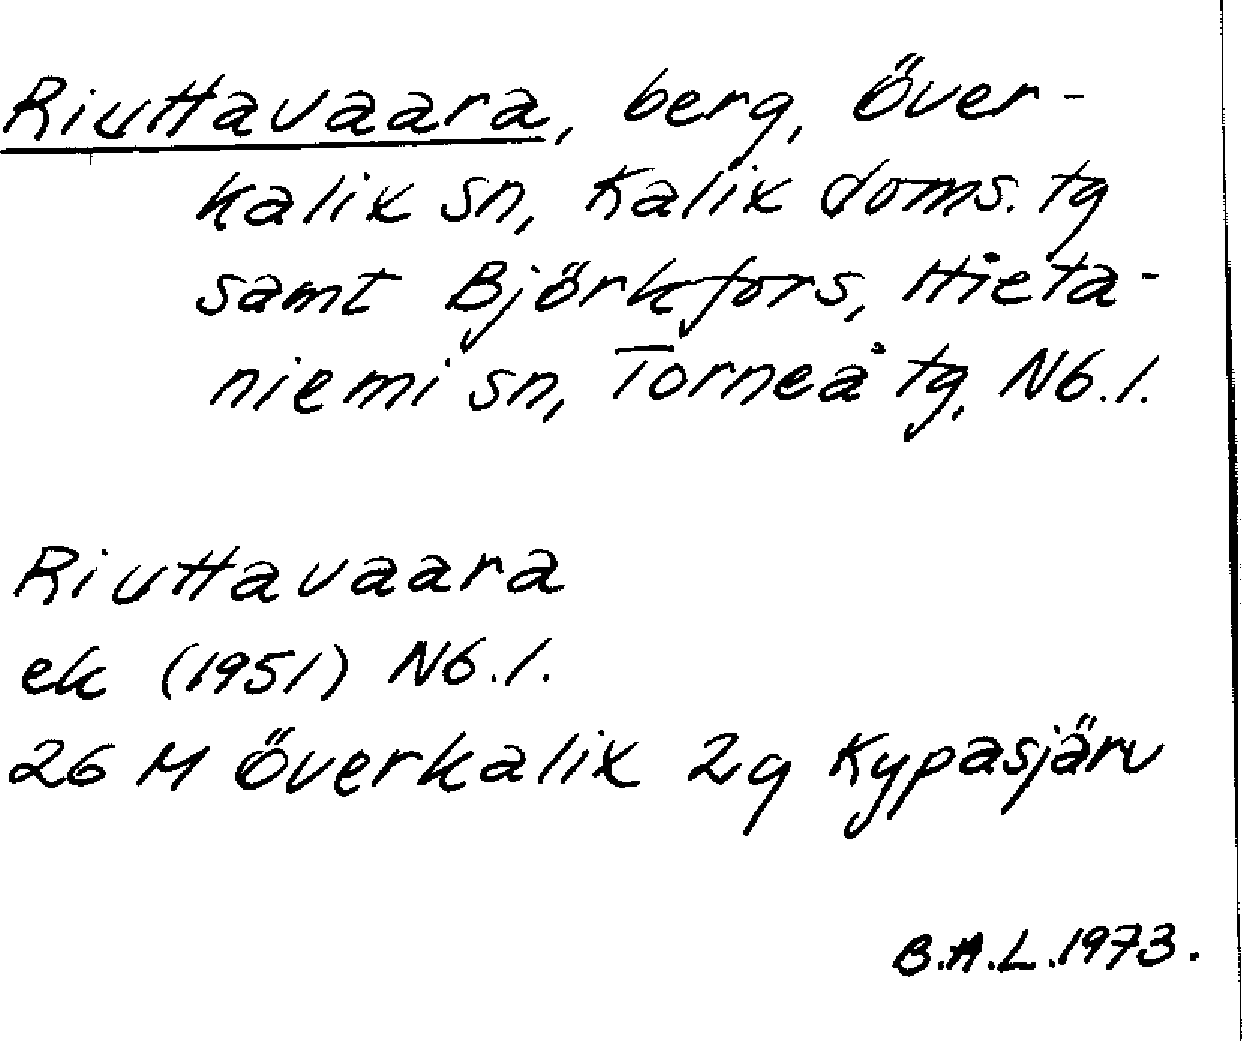 Riuttavaara, berg, Över-
kalix sn, Kalix doms. tg
samt Björkfors, Hieta-
niemi sn, Torneå tg, Nb.l.
Riuttavaara
ek (1951) Nb.l.
26 M Överkalix 2g Kypasjärv
B.A.L. 1973.